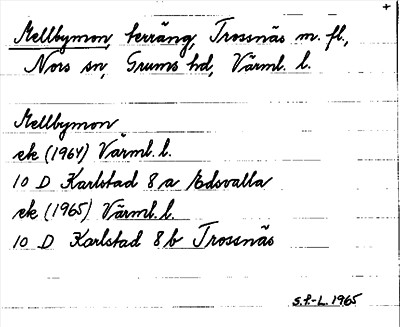 +
Mellbymon, terräng, Trossnäs m. fl.,
Nors sn, Grums hd, Värml. l.
Mellbymon
ek (1964) Värml. l.
10 D Karlstad 8 a Edsvalla
ek (1965) Värml. l.
10 D Karlstad 8 b Trossnäs
S.F.-L. 1965